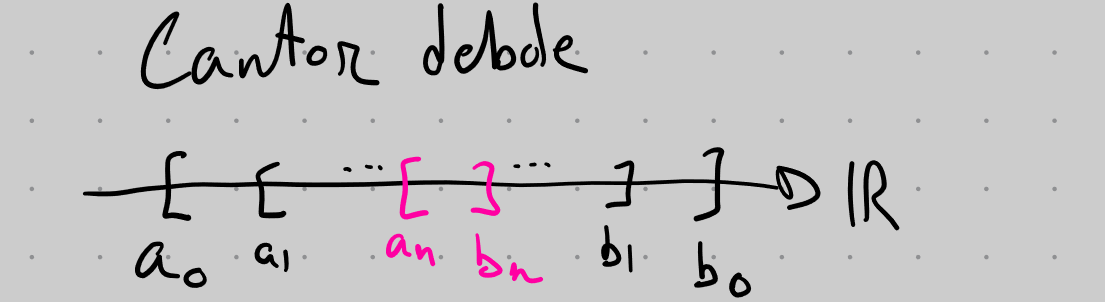 Cantor debole
[ [ ... [ ] ... ] ] ℝ
a₀ a₁ aₙ bₙ b₁ b₀